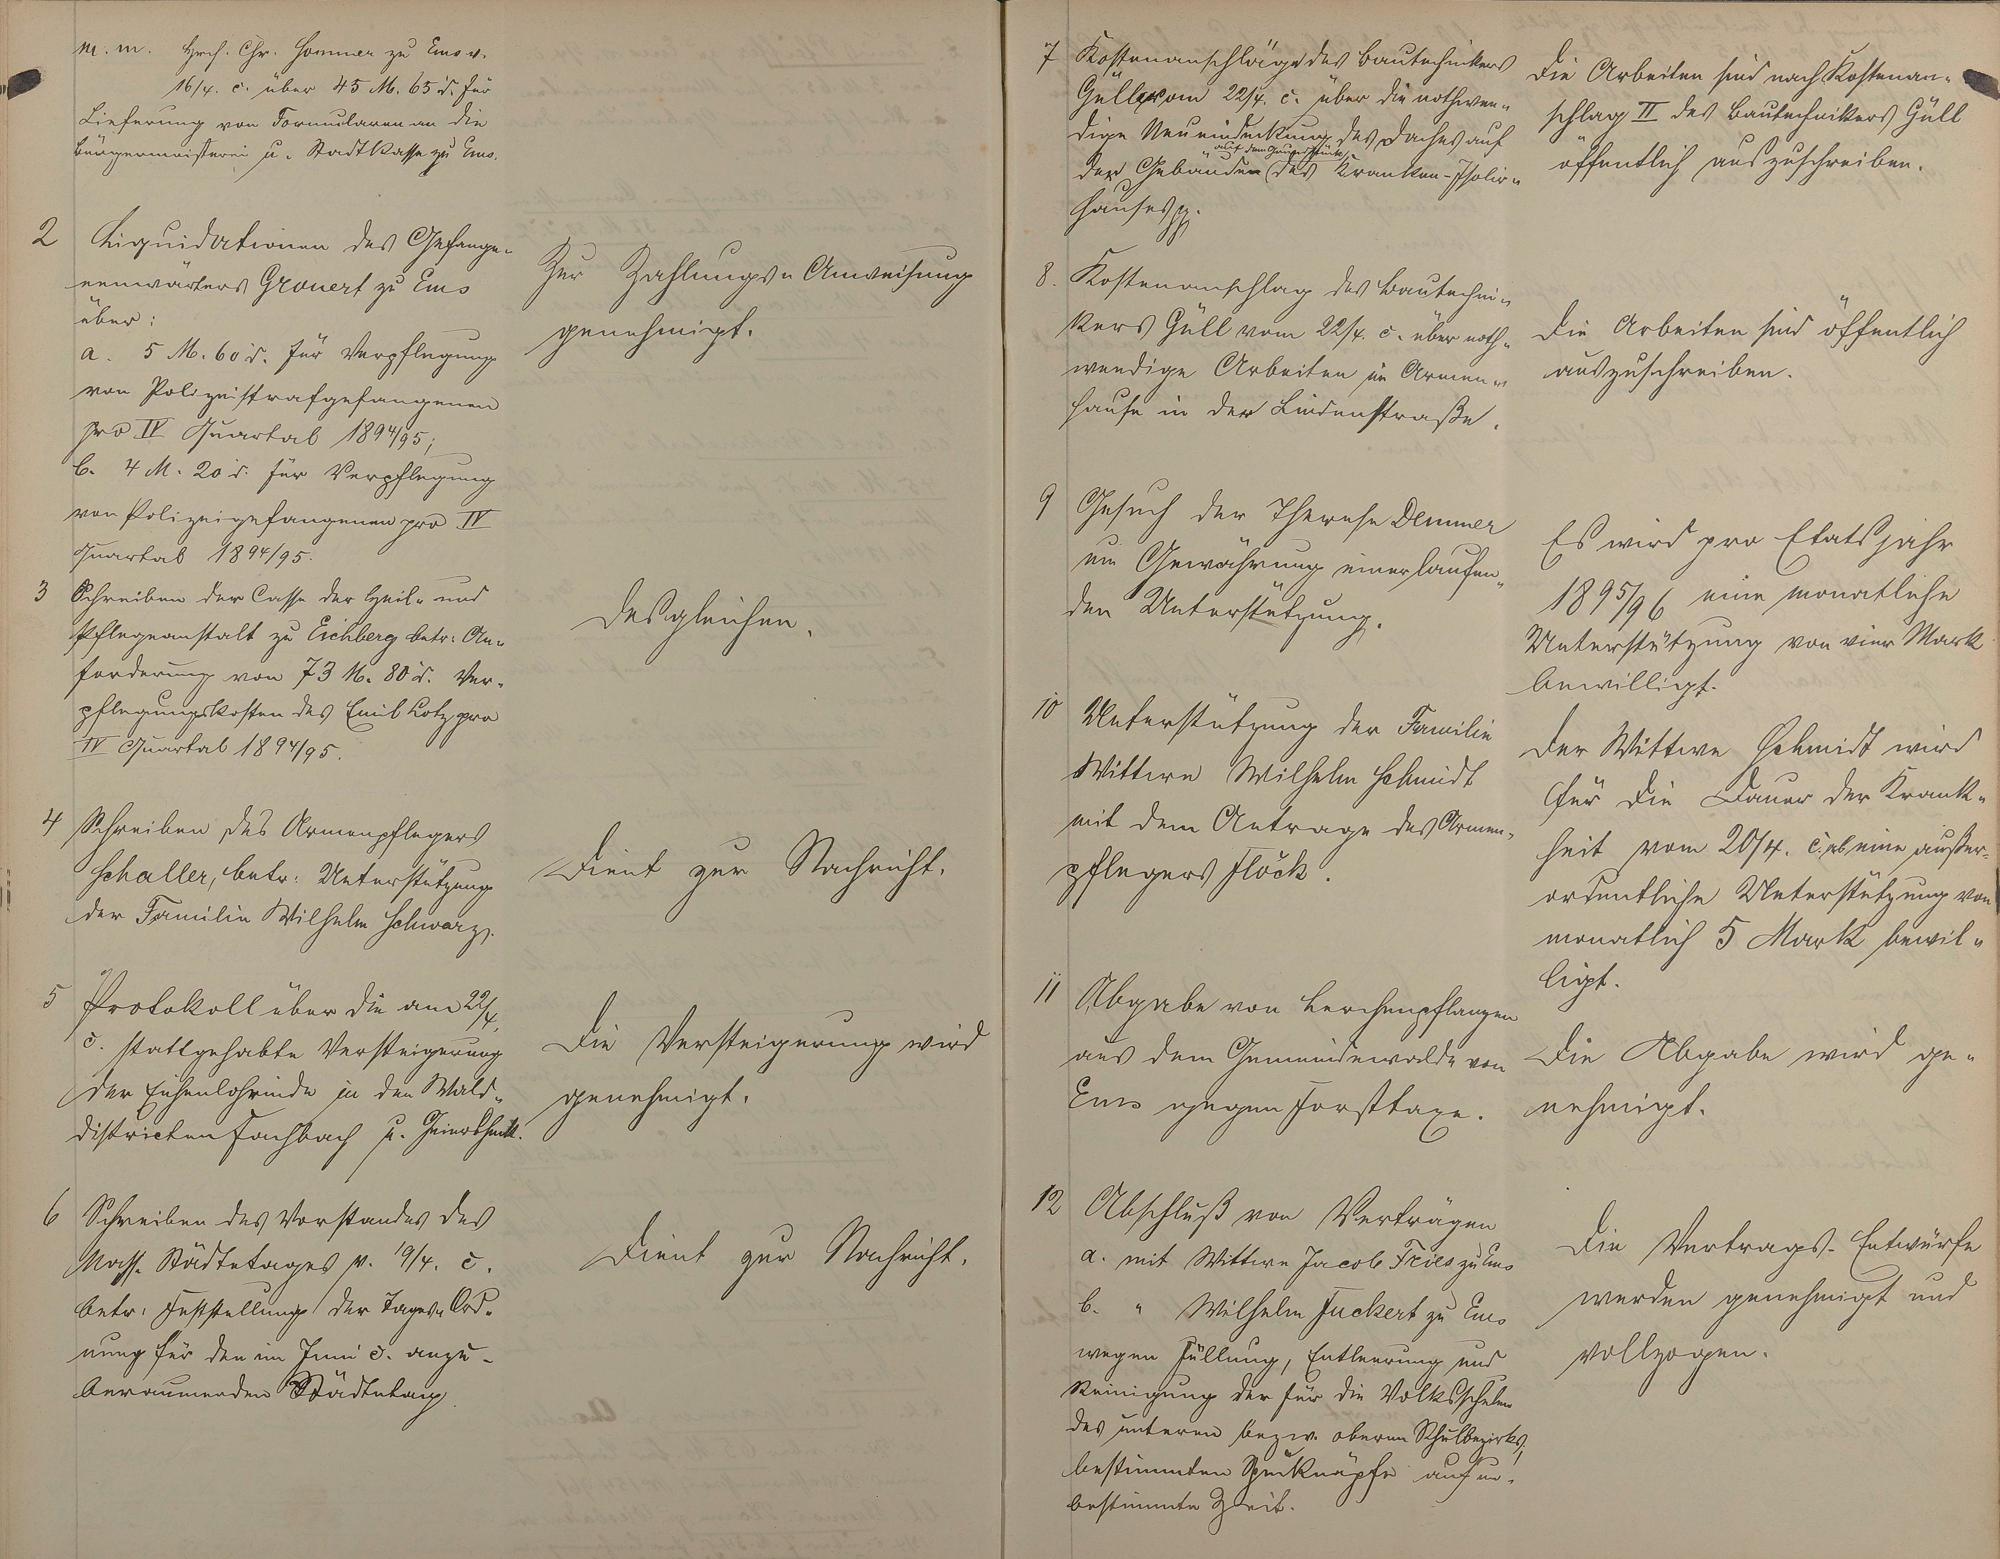 m. m. Hrch. Chr. Sommer zu Ems v.
16/4. c. über 45 M. 65 d. für
Lieferung von Formularen an die
Bürgermeisterei u. Stadtkasse zu Ems.
2 Liquidationen des Gefange-
nenwärters Grouert zu Ems
über:
a. 5 M. 60 d. für Verpflegung
von Polizeistrafgefangenen
pro IV Quartal 1894/95;
b. 4 M. 20 d. für Verpflegung
von Polizeigefangenen pro IV
Quartal 1894/95.
Zur Zahlungs-Anweisung
genehmigt.
3 Schreiben der Casse der Heil- und
Pflegeanstalt zu Eichberg betr: An-
forderung von 73 M. 80 d. Ver-
pflegungskosten des Emil Lotz pro
IV Quartal 1894/95.
Desgleichen.
4 Schreiben des Armenpflegers
Schaller, betr: Unterstützung
der Familie Wilhelm Schwarz.
Dient zur Nachricht.
5 Protokoll über die am 22/4.
c. stattgehabte Versteigerung
der Eichenlohrinde in den Wald-
districten Fachbach u.
Die Versteigerung wird
genehmigt.
6 Schreiben des Vorstandes des
Nass. Städtetages v. 19/4. c.
betr: Feststellung der Tages-Ord-
nung für den im Juni c. anzu-
beraumenden Städtetag.
Dient zur Nachricht.
7 Kostenanschläge des Bautechnikers
Güll vom 22/4. c. über die nothwen-
dige Neueindeckung des Daches auf
der Gebäuden (auf dem Grundstück) des Kranken-Isolir-
hauses pp.
Die Arbeiten sind nach Kostenan-
schlag II des Bautechnikers Güll
öffentlich auszuschreiben.
8. Kostenanschlag des Bautechni-
kers Güll vom 22/4. c. über noth-
wendige Arbeiten im Armen-
hause in der Lindenstraße.
Die Arbeiten sind öffentlich
auszuschreiben.
9 Gesuch der Therese Demmer
um Gewährung einer laufen-
den Unterstützung.
Es wird pro Etatsjahr
1895/96 eine monatliche
Unterstützung von vier Mark
bewilligt.
10 Unterstützung der Familie
Wittwe Wilhelm Schmidt
mit dem Antrage des Armen-
pflegers Flöck.
Der Wittwe Schmidt wird
für die Dauer der Krank-
heit vom 20/4. c. ab eine außer-
ordentliche Unterstützung von
monatlich 5 Mark bewil-
ligt.
11 Abgabe von Lerchenpflanzen
aus dem Gemeindewalde von
Ems gegen Forsttaxe.
Die Abgabe wird ge-
nehmigt.
12 Abschluß von Verträgen
a. mit Wittwe Jacob Fries zu Ems
b. " Wilhelm Fuckert zu Ems
wegen Füllung, Entleerung und
Reinigung der für die Volksschulen
des unteren bezw. oberen Schulbezirks,
bestimmten Spucknäpfe auf un-
bestimmte Zeit.
Die Vertrags-Entwürfe
werden genehmigt und
vollzogen.